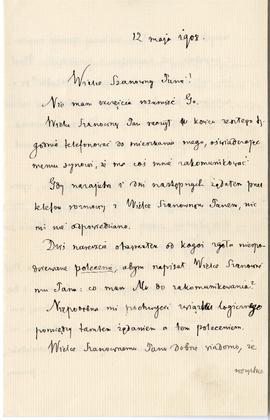 12 maja 1908.
Wielce Szanowny Panie!
Nie mam szczęścia rozumieć Go.
Wielce Szanowny Pan raczył w końcu zeszłego ty-
godnia telefonować do mieszkania mego, oświadczając
memu synowi, że ma coś mnie zakomunikować.
Gdy nazajutrz i dni następnych żądałem przez
telefon rozmowy z Wielce Szanownym Panem, nic
mi nie odpowiedziano.
Dziś nareszcie otrzymałem od kogoś zgoła niespo-
dziewane polecenie, abym napisał Wielce Szanowne-
mu Panu: co mam Mu do zakomunikowania?
Niepodobna mi pochwycić związku logicznego
pomiędzy tamtem żądaniem a tem poleceniem.
Wielce Szanownemu Panu dobrze wiadomo, że